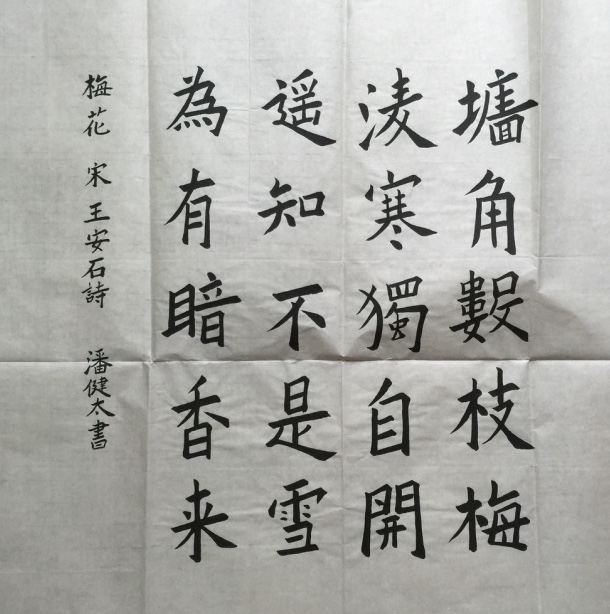 墻角數枝梅
淩寒獨自開
遥知不是雪
為有暗香来
梅花 宋 王安石詩 潘健太書